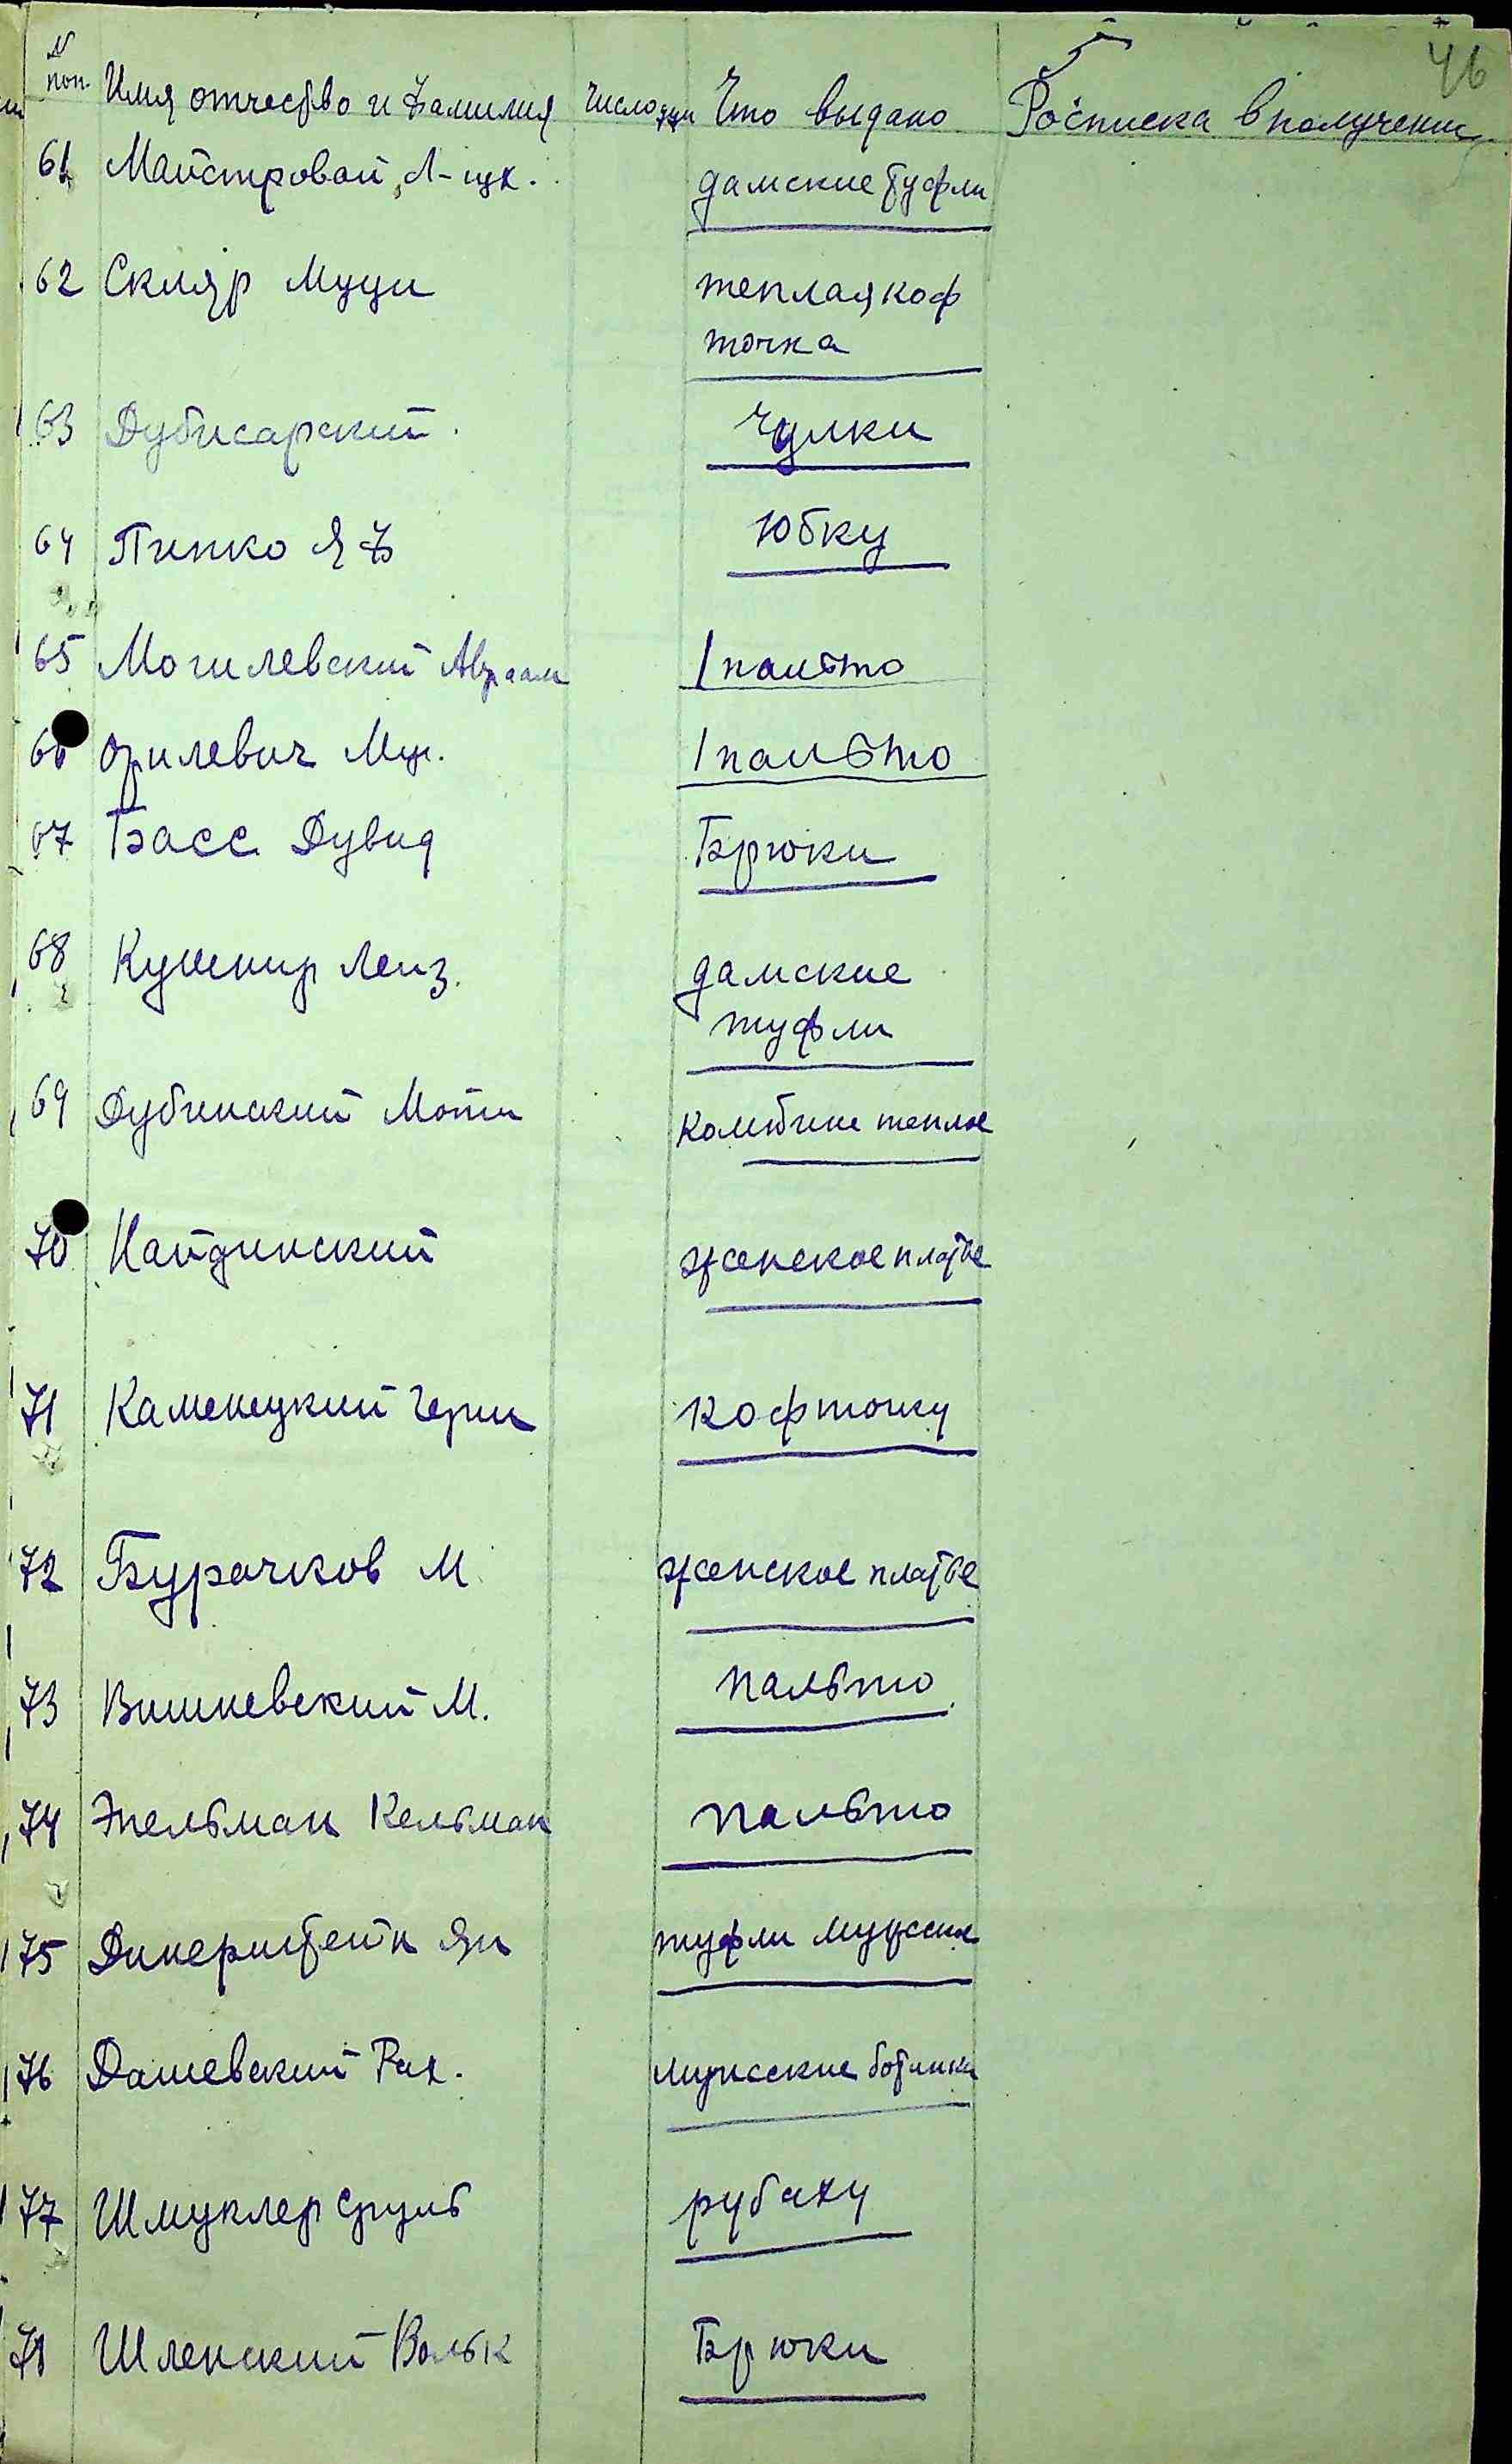 46
N поп. Имя отчество и фамилия число душ Что выдано Росписка в получении
61 Майстровой Л-цх. дамские туфли
62 Скляр Муци теплая коф
точка
63 Дубисарский. чулки
64 Пипко Я Ф Юбку
65 Могилевский Авраам 1 пальто
66 Орилевич Мух. 1 пальто
67 Басс Дувид Брюки
68 Кушнир Лейз. дамские
туфли
69 Дубинский Моти комбине теплое
70 Найдинский женское платье
71 Каменецкий Герш кофточку
72 Бурачков М женское платье
73 Вишневский М. пальто
74 Эпельман Кельман пальто
75 Динерштейн Ян туфли мужские
76 Дашевский Рах. мужские ботинки
77 Шмуклер Сруль рубаху
78 Шленский Вольк Брюки